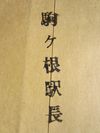 駒ヶ根駅長